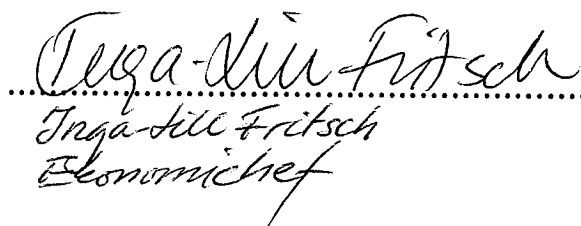 Inga-Lill Fritsch
Inga-Lill Fritsch
Ekonomichef